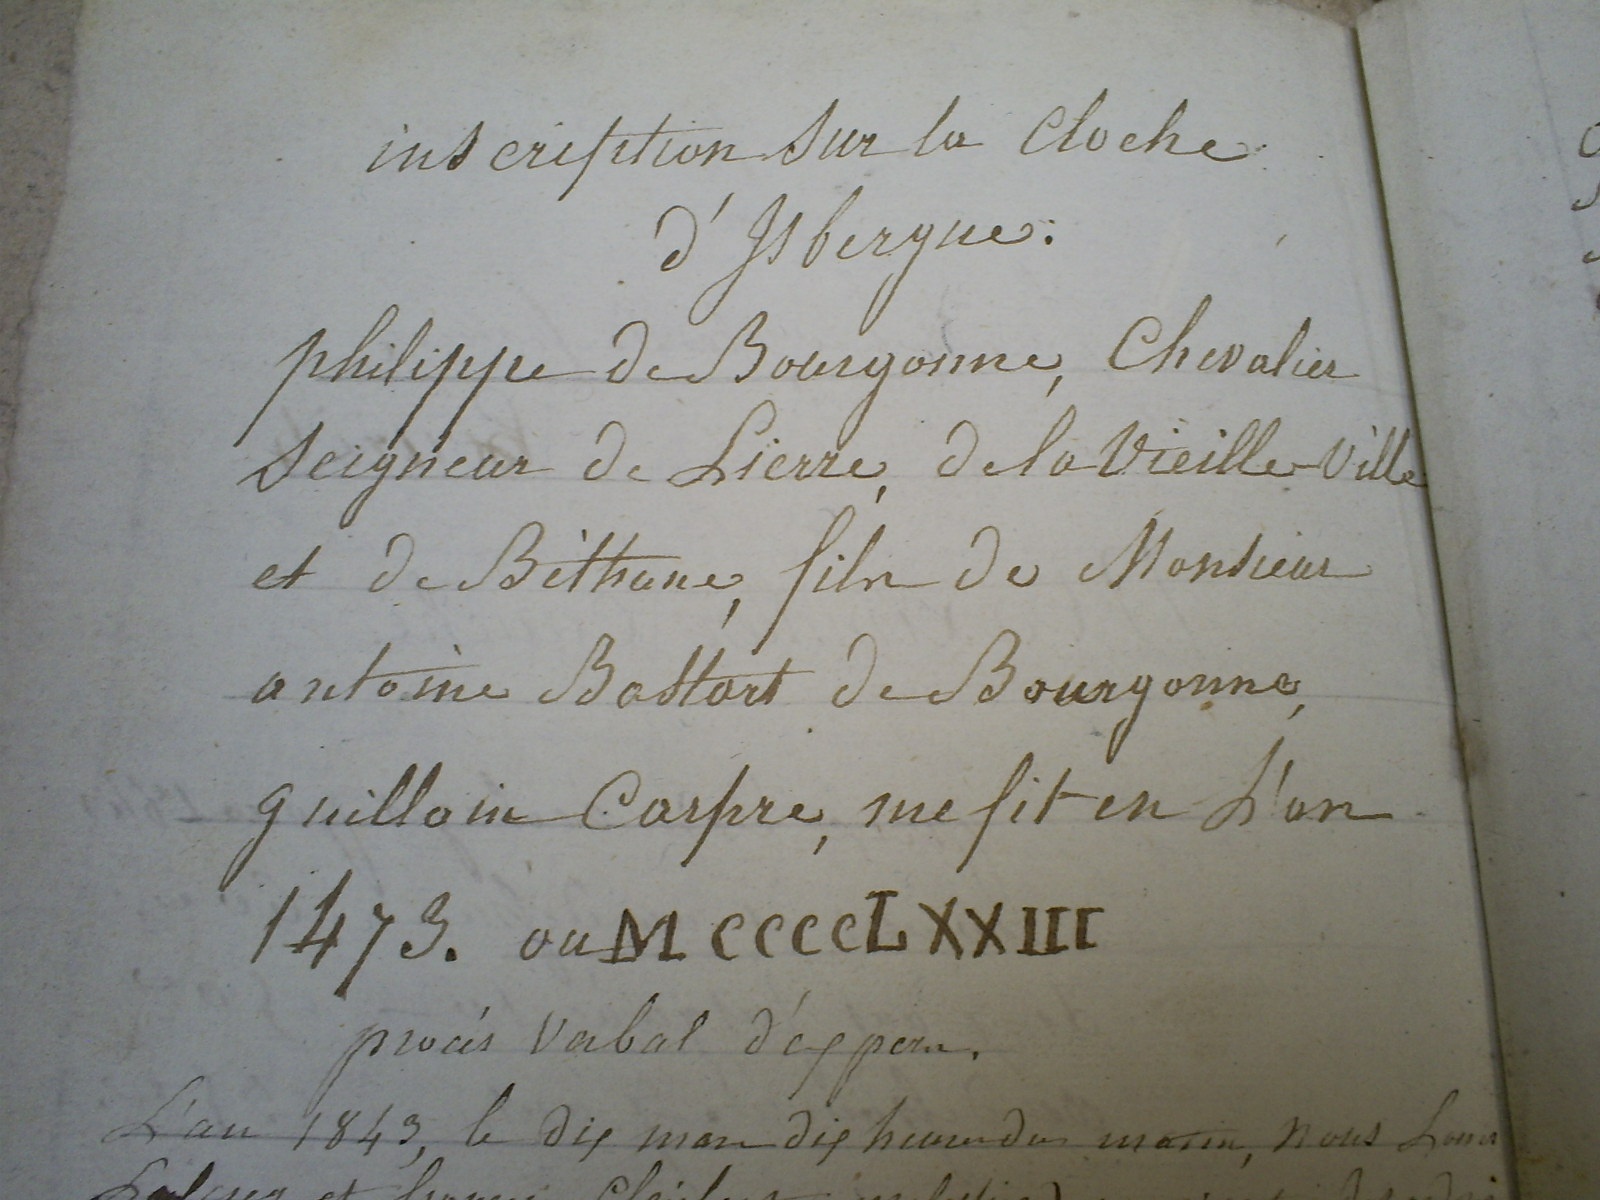 inscription sur la Cloche
d'Isbergue:
philippe de Bourgonne, Chevalier
Seigneur de Lierre, de la Vieille-Ville
et de Béthune, fils de Monsieur
antoine Bastart de Bourgonne,
guillain Carpre, me fit en L'an
1473. ou MCCCCLXXIII
procès verbal
L'an 1843, le dix mars dix heures du matin, nous
et